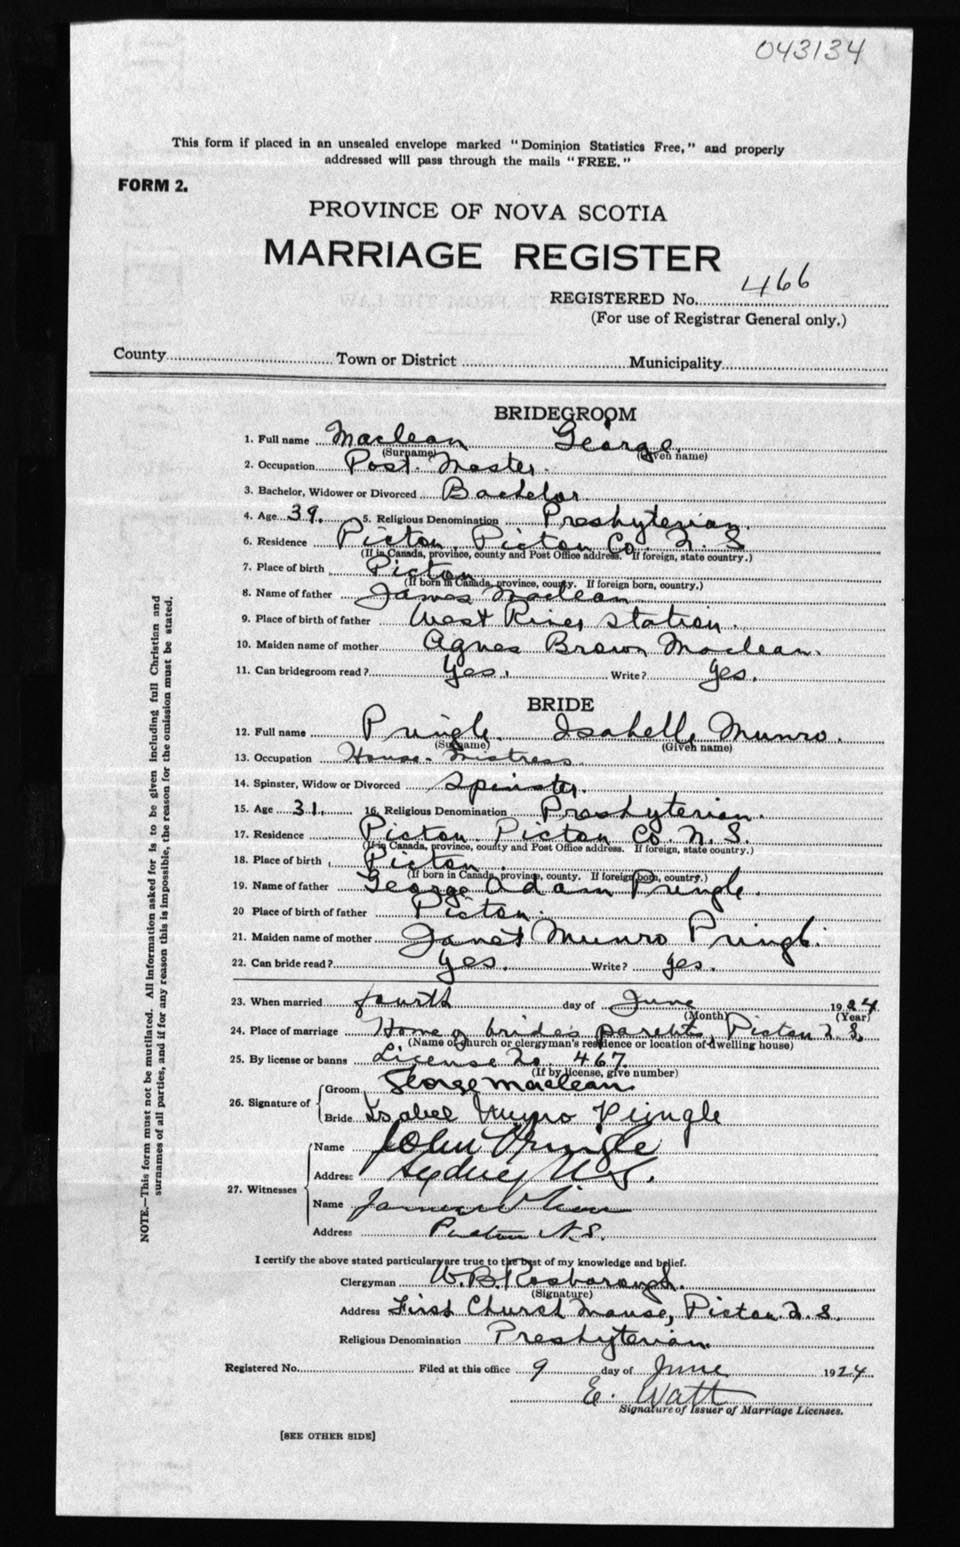 043134
This form if placed in an unsealed envelope marked "Dominion Statistics Free," and properly
addressed will pass through the mails "FREE."
FORM 2.
PROVINCE OF NOVA SCOTIA
MARRIAGE REGISTER
REGISTERED No. 466
(For use of Registrar General only.)
County Town or District Municipality
BRIDEGROOM
1. Full name Maclean George
(Surname) (Given name)
2. Occupation Post. Master.
3. Bachelor, Widower or Divorced Bachelor.
4. Age 39. 5. Religious Denomination Presbyterian.
6. Residence Pictou, Pictou Co. N. S
(If in Canada, province, county and Post Office address. If foreign, state country.)
7. Place of birth Pictou
(If born in Canada, province, county. If foreign born, country.)
8. Name of father James Maclean
9. Place of birth of father West River Station.
10. Maiden name of mother Agnes Brown Maclean.
11. Can bridegroom read? Yes. Write? Yes.
BRIDE
12. Full name Pringle. Isabelle Munro.
(Surname) (Given name)
13. Occupation House-mistress
14. Spinster, Widow or Divorced Spinster.
15. Age 31. 16. Religious Denomination Presbyterian.
17. Residence Pictou Pictou Co. N. S.
(If in Canada, province, county and Post Office address. If foreign, state country.)
18. Place of birth Pictou.
(If born in Canada, province, county. If foreign born, country.)
19. Name of father George Adam Pringle.
20 Place of birth of father Pictou.
21. Maiden name of mother Janet Munro Pringle.
22. Can bride read? Yes. Write? Yes.
23. When married fourth day of June 1924
(Month) (Year)
24. Place of marriage Home of brides parents, Pictou N. S,
(Name of church or clergyman's residence or location of dwelling house)
25. By license or banns License No. 467
(If by license, give number)
26. Signature of Groom George Maclean
Bride Isabel Munro Pringle
27. Witnesses
Name John Pringle
Address Sydney N.S.
Name
Address Pictou N.S.
I certify the above stated particulars are true to the best of my knowledge and belief.
Clergyman W. B. Rosborough.
(Signature)
Address First Church Manse, Pictou N. S.
Religious Denomination Presbyterian.
Registered No. Filed at this office 9 day of June 1924
E. Watt
Signature of Issuer of Marriage Licenses.
[SEE OTHER SIDE]
NOTE.—This form must not be mutilated. All information asked for is to be given including full Christian and
surnames of all parties, and if for any reason this is impossible, the reason for the omission must be stated.